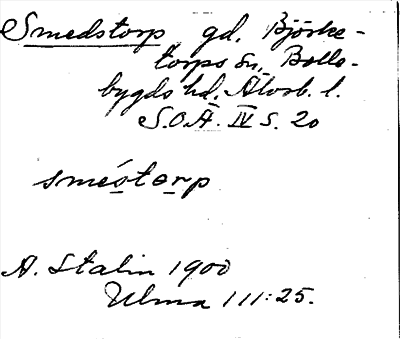 Smedstorp gd, Björke-
torps sn, Bolle-
bygds hd. Älvsb. l.
S.O.Ä. IV s. 20
sméstorp
A. Stalin 1900
Ulma 111:25.